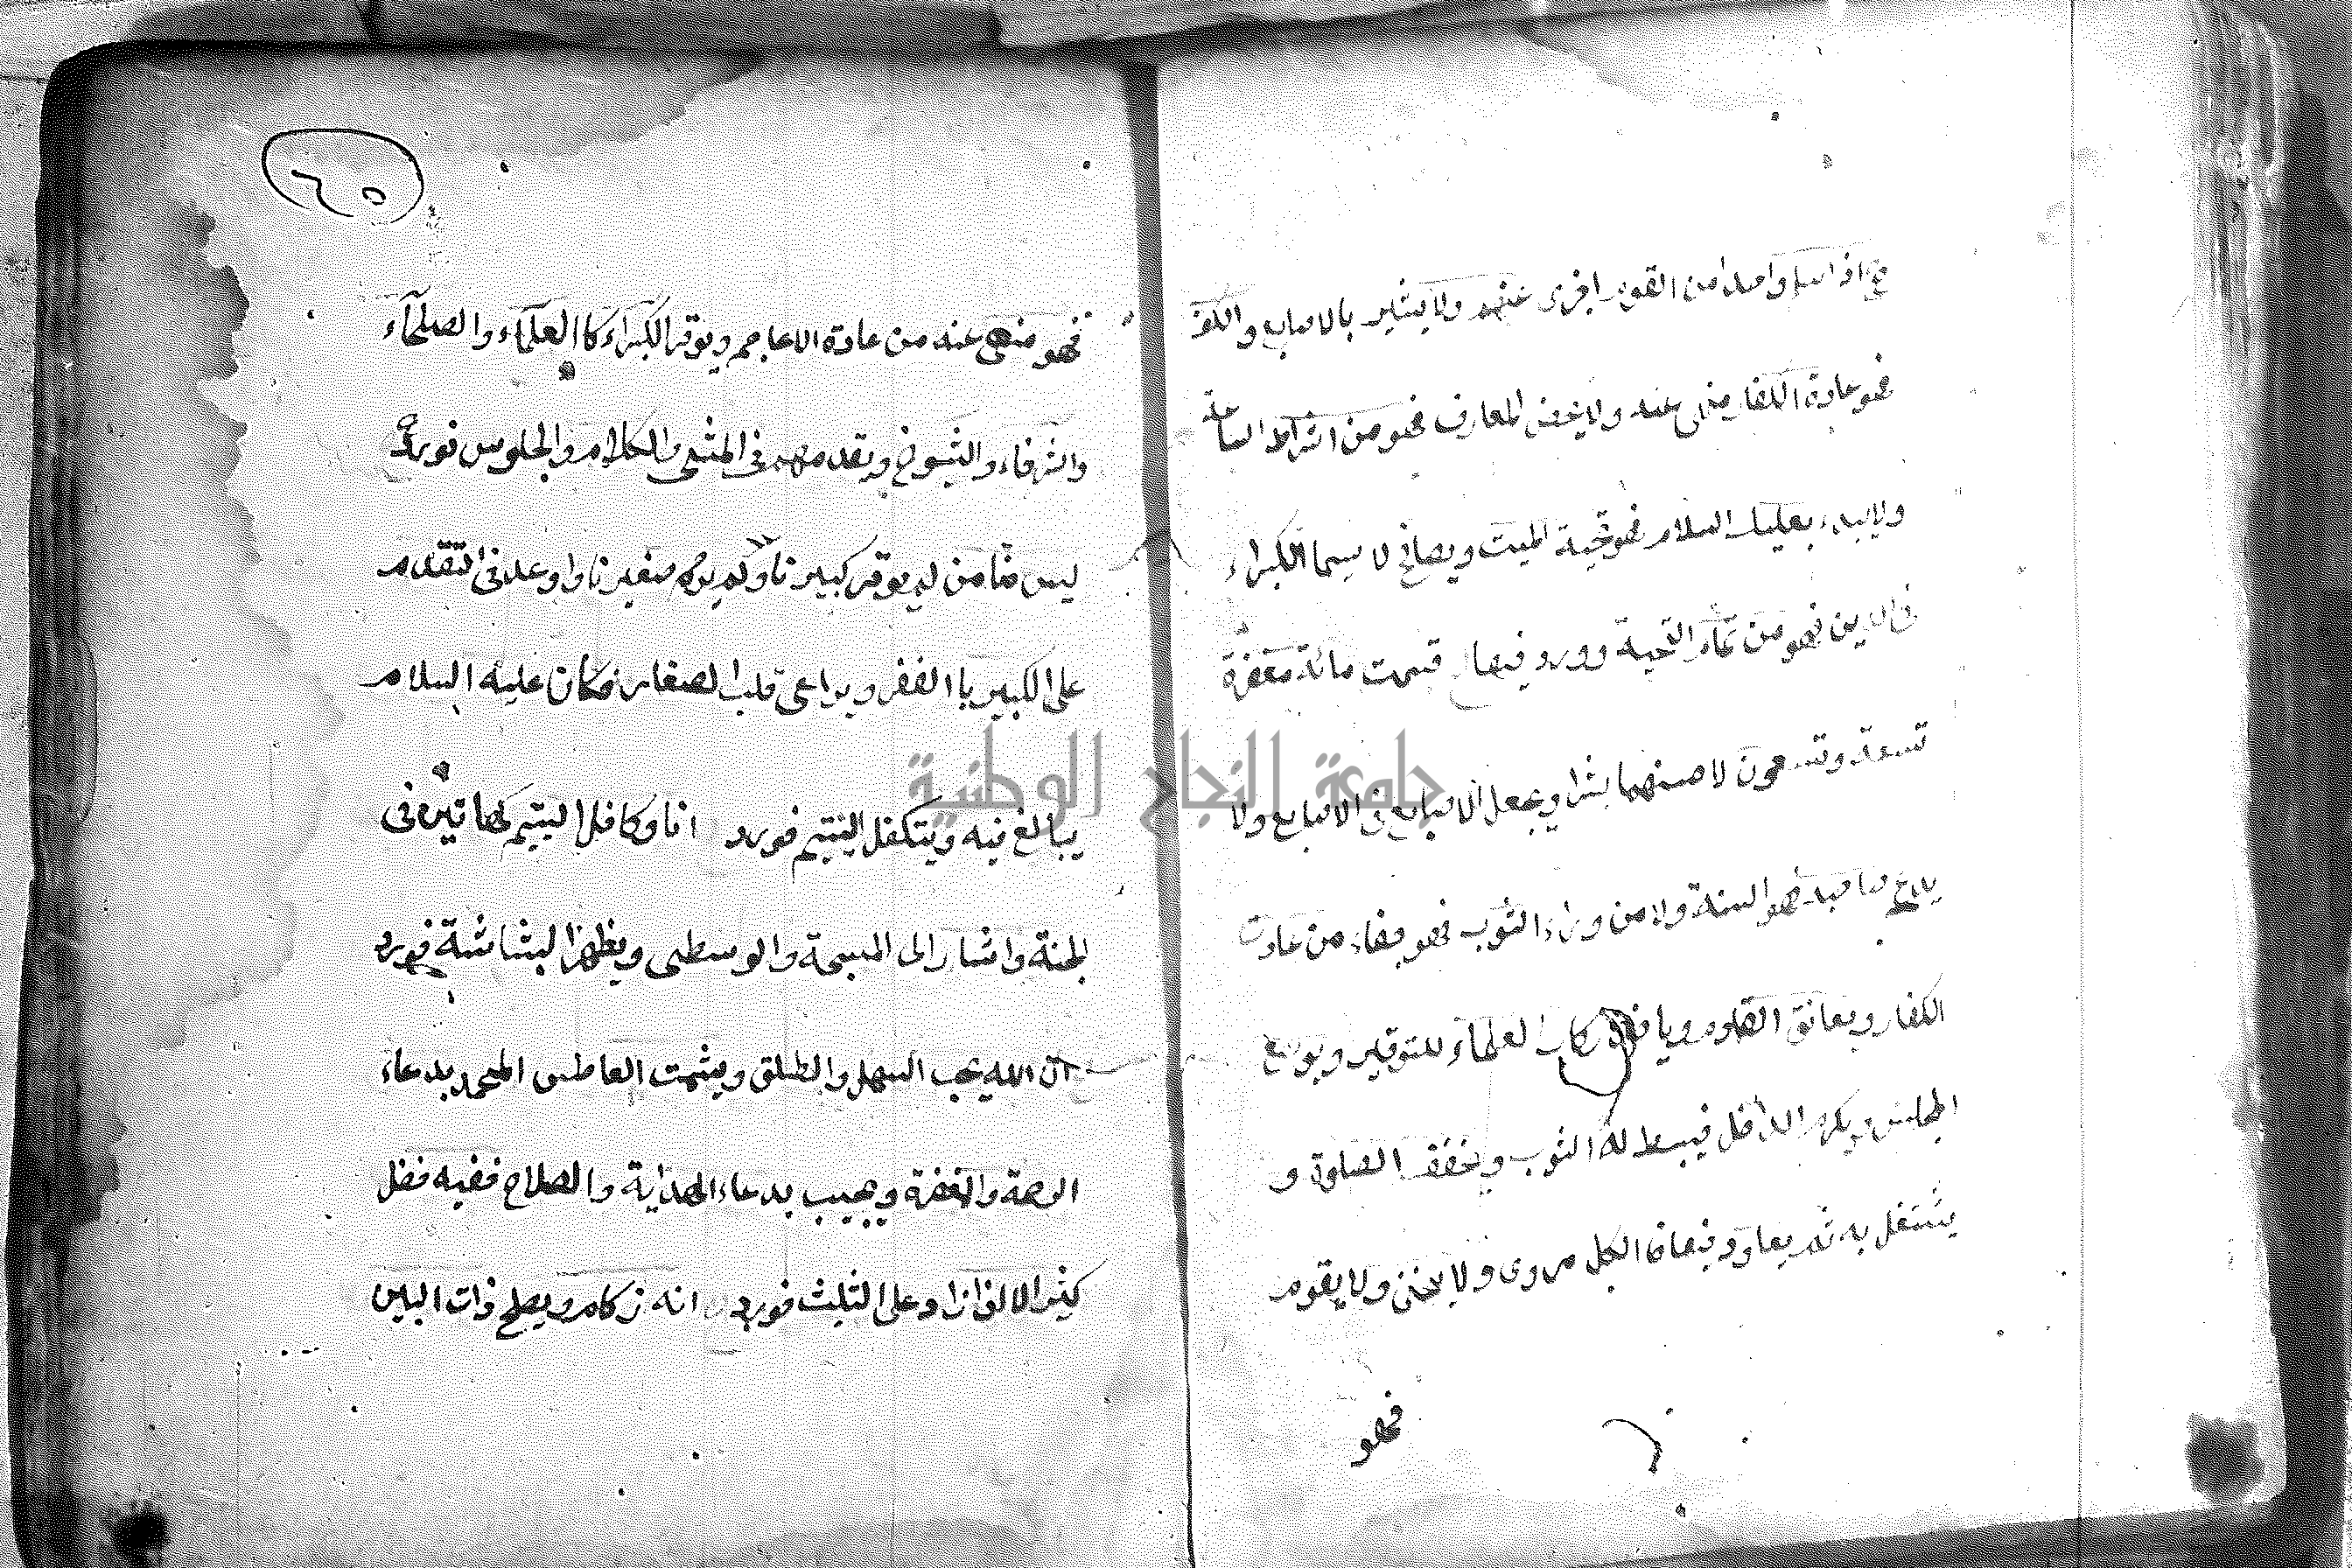 اذا سلم واحد من القوم اجزى عنهم ولا يشير بالاصابع والكف
فهو عادة الكفار منهى عنه ولا يخص المعارف فهو من اشراط الساعة
ولا يبدء بعليك السلام فهو تحية الميت ويصافح لا سيما الكبراء
فى الدين فهو من تمام التحية وورد فيها قسمت مائة مغفرة
تسعة وتسعون لاحسنهما بشرا ويجعل الاصابع فى الاصابع ولا
فهو السنة ولا من وراء الثوب فهو جفاء من عادت
الكفار ويعانق القادم ويا ركاب العلماء للتوقير ويوسع
المجلس ويكرم الداخل فيبسط له الثوب ويخفف الصلوة و
يشتغل به ثم يعاود فيهان الكل مروى ولا ينحنى ولا يقوم
فهو
٦٥
فهو منهى عنه من عادة الاعاجم ويوقر الكبراء كا العلماء والصلحاء
والشرفاء والشيوخ ويقدمهم فى المشى والكلام والجلوس فورد
ليس منا من لم يوقر كبيرنا ولم يرحم صغيرنا واوعد فى التقدم
على الكبير با الفقر ويراعى قلب الصغار فكان عليه السلام
يبالغ فيه ويتكفل اليتيم فورد انا وكافل اليتيم كهاتين فى
الجنة واشار الى المسبحة والوسطى ويظهر البشاشة فورد
ان الله يحب السهل والطلق ويشمت العاطس المحمد بدعاء
الرحمة والمغفرة ويجيب بدعاء الهداية والصلاح ففيه فضل
كثير الا اذا زاد على الثلث فورد انه زكام ويصلح ذات البين
جامعة النجاح الوطنية